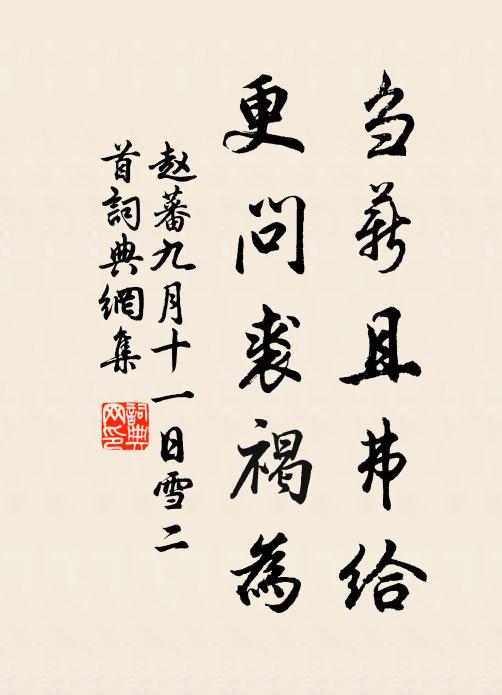 刍薪且弗给
更问裘褐為
赵蕃九月十一日雪二
首詞典網集
詞典
网印